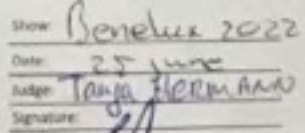 Show: Benelux 2022
Date: 25 june
Judge: Tanja HERMANN
Signature: